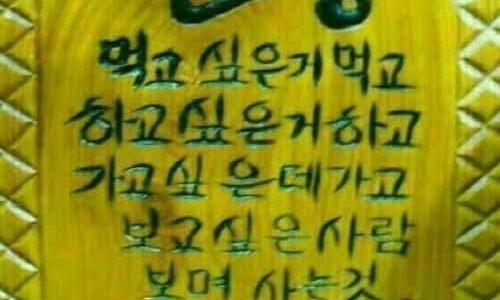 먹고싶은거먹고
하고싶은거하고
가고싶은데가고
보고싶은사람
보며 사는것